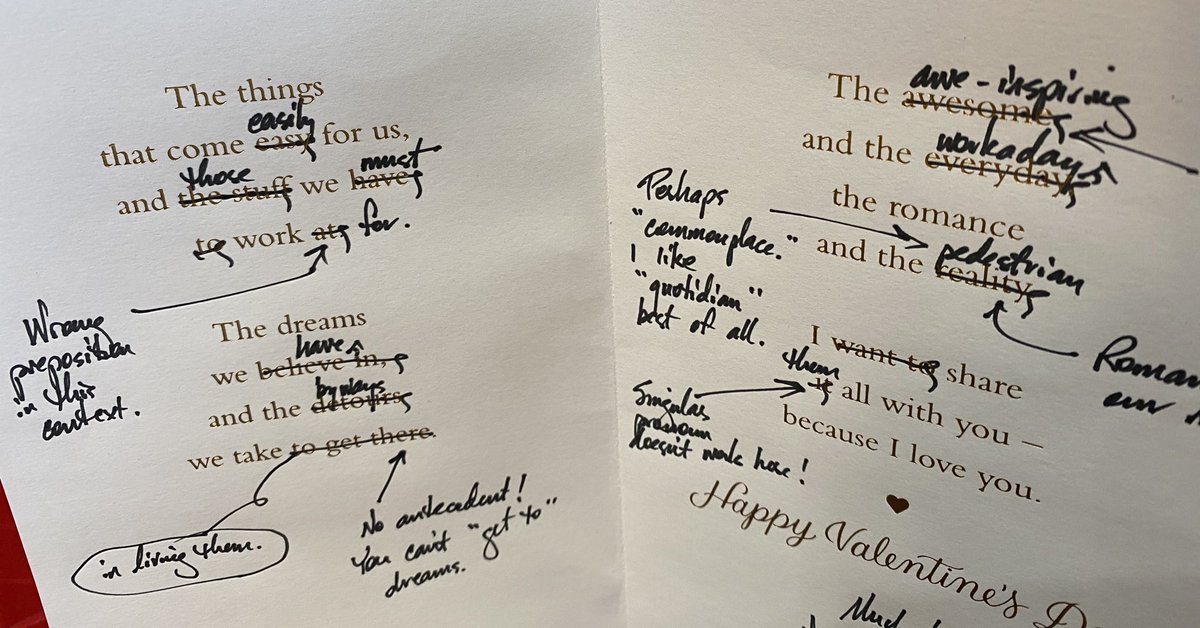 The things
easily
that come easy for us,
those must
and the stuff we have
to work at for.
Wrong
preposition
in this
context.
The dreams
have
we believe in,
byways
and the detours
we take to get there.
in living them.
No antecedent!
You can't "get to"
dreams.
awe-inspiring
The awesome
workaday
and the everyday
the romance
pedestrian
and the reality
Perhaps
"commonplace."
I like
"quotidian"
best of all.
I want to share
them
it all with you —
because I love you.
Singular
pronoun
doesn't work here!
Happy Valentine's